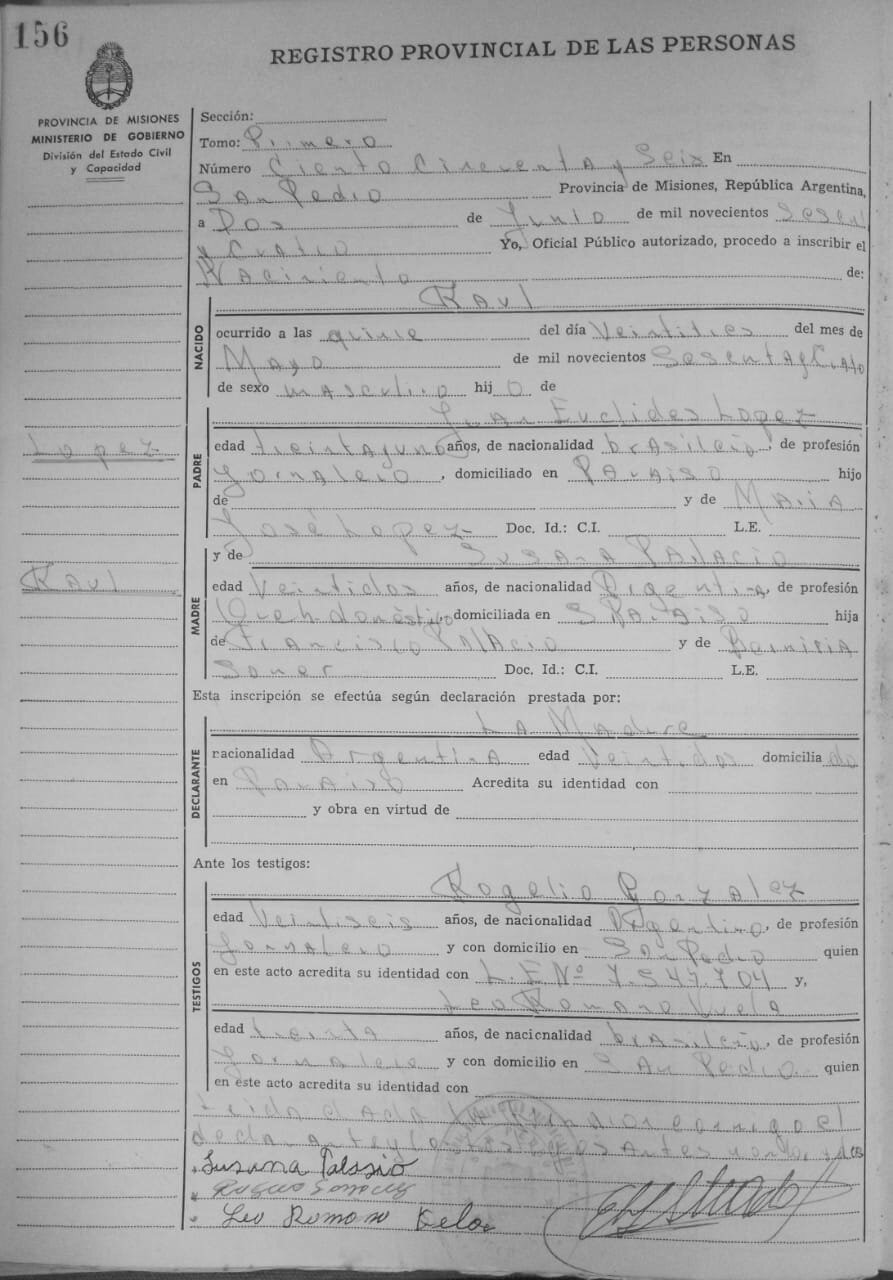 156
REGISTRO PROVINCIAL DE LAS PERSONAS
PROVINCIA DE MISIONES
MINISTERIO DE GOBIERNO
División del Estado Civil
y Capacidad
Sección:
Tomo: Primero
Número Ciento Cincuenta y Seis En
San Pedro Provincia de Misiones, República Argentina,
a Dos de Junio de mil novecientos Sesent
y Cuatro Yo, Oficial Público autorizado, procedo a inscribir el
Nacimiento de:
Raul
NACIDO
ocurrido a las quince del día Veintitres del mes de
Mayo de mil novecientos Sesenta y
de sexo masculino hij o de
Juan Euclides Lopez
Lopez
PADRE
edad treinta y uno años, de nacionalidad brasileño, de profesión
Jornalero, domiciliado en Paraiso hijo
de y de Maria
José Lopez Doc. Id.: C.I. L.E.
y de Susana Palacio
Raul
MADRE
edad Veintidos años, de nacionalidad Argentina, de profesión
doméstico domiciliada en Paraiso hija
de Francisco Palacio y de
Doc. Id.: C.I. L.E.
Esta inscripción se efectúa según declaración prestada por:
La Madre
DECLARANTE
nacionalidad Argentina edad Veintidos domicilia do
en Paraiso Acredita su identidad con
y obra en virtud de
Ante los testigos:
Rogelio Gonzalez
TESTIGOS
edad Veintiseis años, de nacionalidad Argentino, de profesión
Jornalero y con domicilio en San Pedro quien
en este acto acredita su identidad con L.E Nº 7.547.704 y,
Leo Romano
edad treinta años, de nacionalidad brasileño, de profesión
Jornalero y con domicilio en San Pedro quien
en este acto acredita su identidad con
Leida el Acta la conmigo el
declarante y los testigos
Susana
Leo Romano